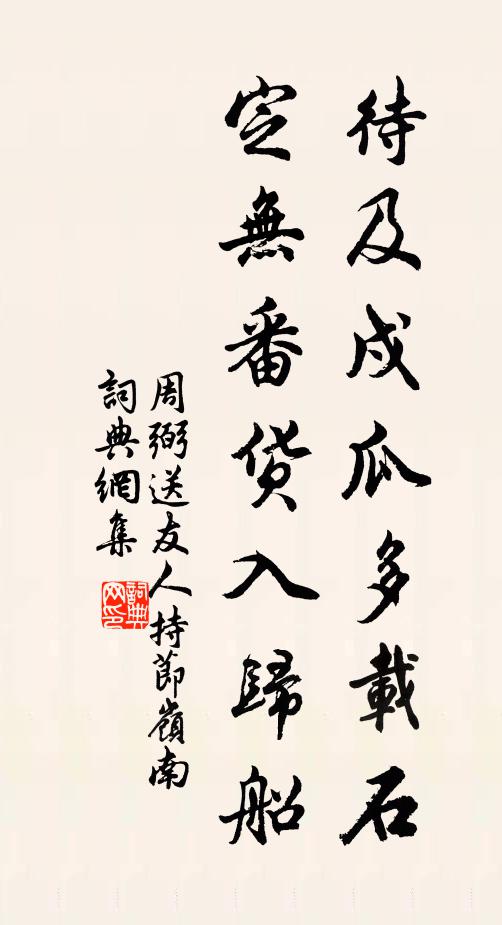 待及戍瓜多載石
定無番貨入歸船
周弼送友人持節嶺南
詞典網集
詞典网印